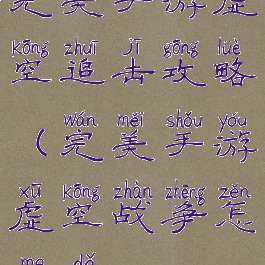 完美手游虚
kōng zhuī jī gōng lüè
空追击攻略
wán měi shǒu yóu
（完美手游
xū kōng zhàn zhēng zěn
虚空战争怎
me dǎ